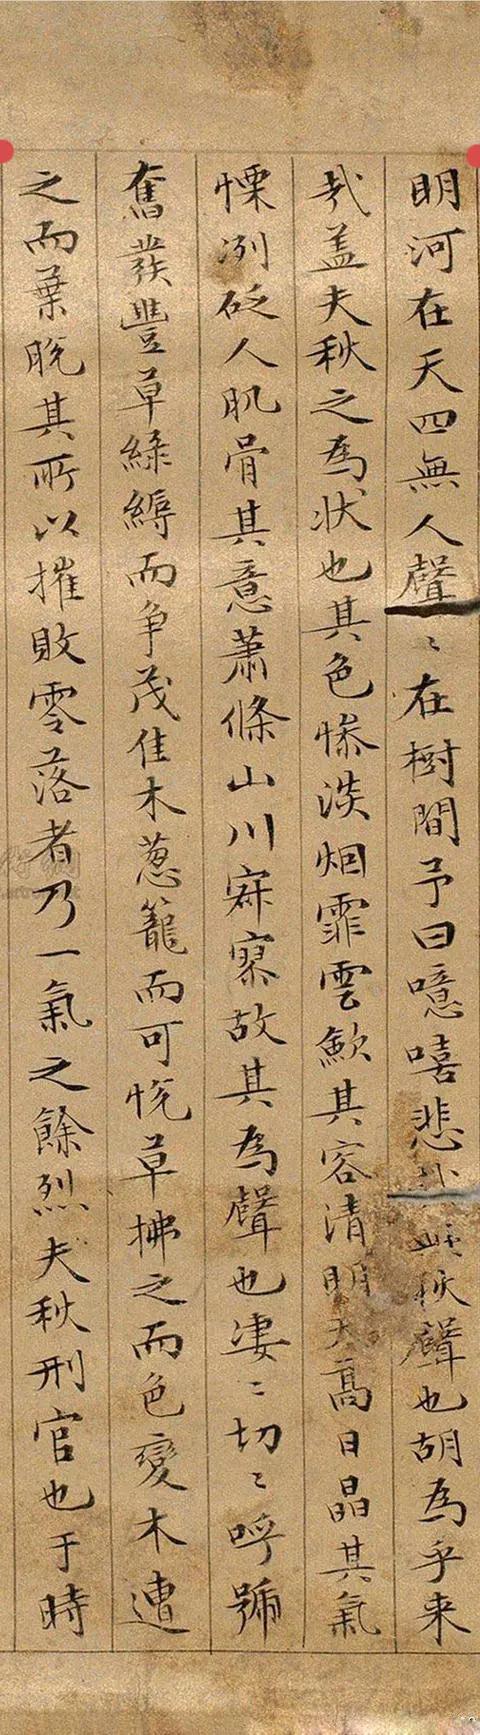 明河在天四無人聲〻在樹間予曰噫嘻悲此秋聲也胡為乎来
哉盖夫秋之為状也其色惨淡烟霏雲歛其容清明天高日晶其氣
慄冽砭人肌骨其意蕭條山川寂寥故其為聲也凄〻切〻呼號
奮發豐草綠縟而争茂佳木葱籠而可悦草拂之而色變木遭
之而葉脱其所以摧敗零落者乃一氣之餘烈夫秋刑官也于時